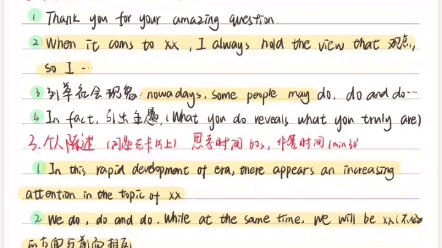 ① Thank you for your amazing question
② When it coms to xx, I always hold the view that 观点,
so I …
③ 列举社会现象: nowadays, some people may do, do and do…
④ In fact, 引出主题, (What you do reveals what you truly are)
3. 个人陈述 (问题在卡片上) 思考时间 60s, 作答时间 1min30
① In this rapid development of era, there appears an increasing
attention in the topic of xx
② We do, do and do. While at the same time, we will be xx